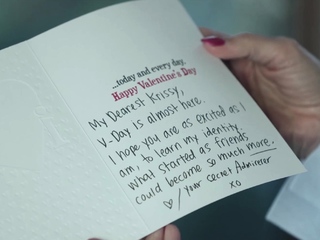 ...today and every day.
Happy Valentine's Day
My Dearest Krissy,
V-Day is almost here.
I hope you are as excited as I
am, to learn my identity.
What started as friends
could become so much more.
♡/your secret Admirer
xo